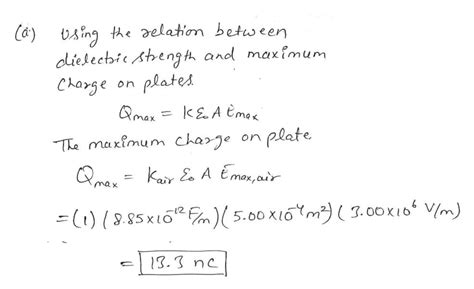 (a) Using the relation between
dielectric strength and maximum
Charge on plates.
Qmax = kε₀ A Emax
The maximum charge on plate
Qmax = kair ε₀ A Emax,air
=(1) (8.85×10⁻¹² F/m)(5.00×10⁻⁴m²)(3.00×10⁶ V/m)
= 13.3 nc